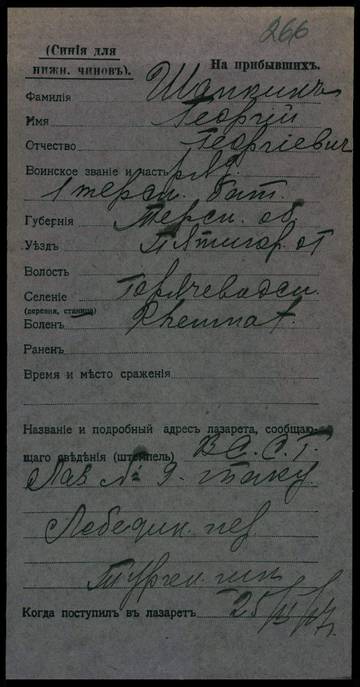 266
(Синія для
нижн. чиновъ).
На прибывшихъ.
Фамилія Шапкинъ
Имя Георгій
Отчество Георгіевич
Воинское званіе и часть ряд.
1 терск. бат.
Губернія Терск. об.
Уѣздъ Пятигор. от
Волость
Селеніе Горячеводск.
(деревня, станица)
Боленъ Rheumat.
Раненъ
Время и мѣсто сраженія
Названіе и подробный адресъ лазарета, сообщаю-
щаго свѣдѣнія (штемпель) В.С.С.Г.
Лаз № 9.
Лебедин. пер
Когда поступилъ въ лазаретъ 25/II/17